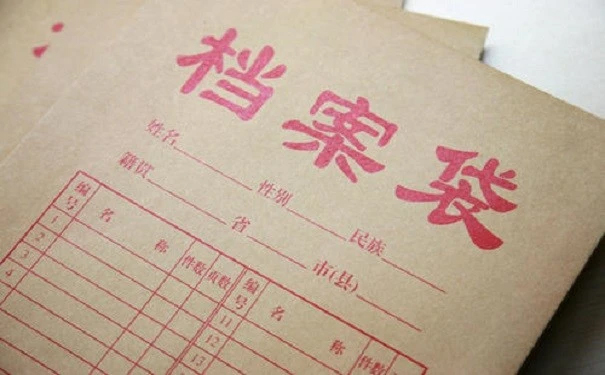 档案袋
姓名 性别 民族
籍贯 省 市(县)
编号 名 称 件数 页数 编号 名 称 件数
1 11
2 12
3 13
4